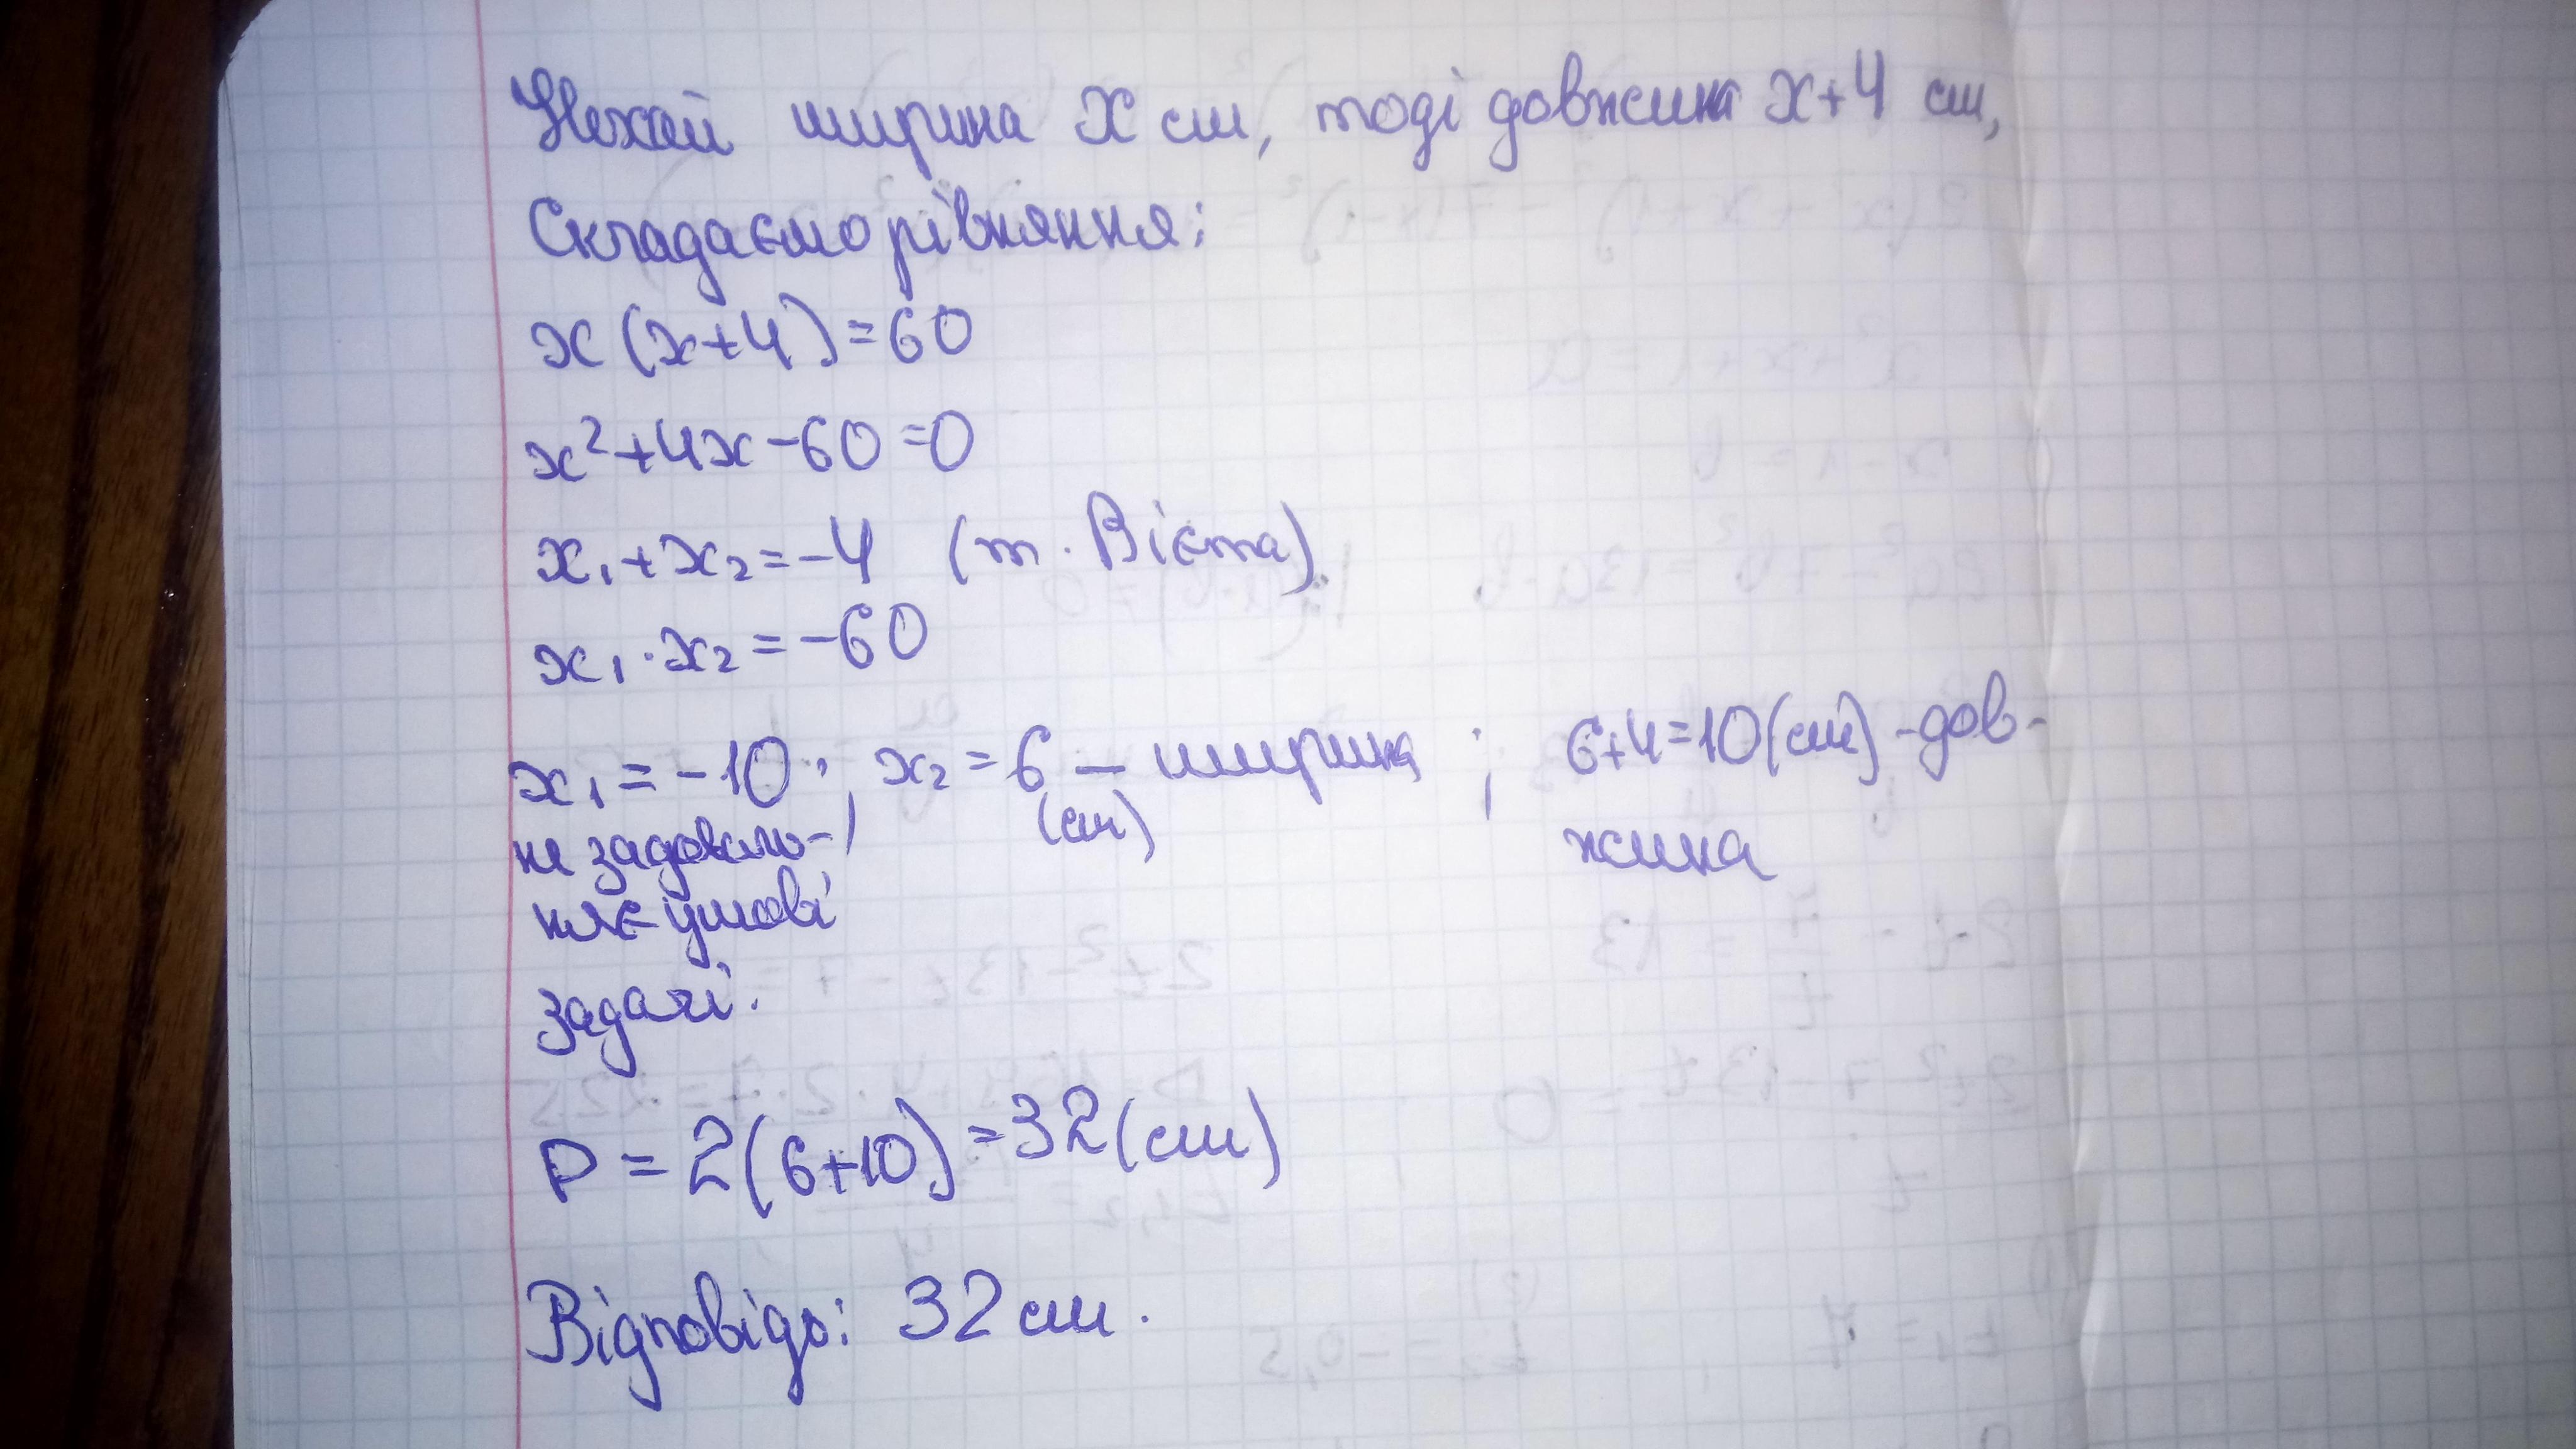 Нехай ширина x см, тоді довжина x+4 см,
Складаємо рівняння:
x(x+4)=60
x²+4x-60=0
x₁+x₂=-4 (т. Вієта)
x₁·x₂=-60
x₁=-10; x₂=6 — ширина; 6+4=10(см) -дов-
не задоволь- (см) жина
няє умові
задачі.
P=2(6+10)=32(см)
Відповідь: 32 см.